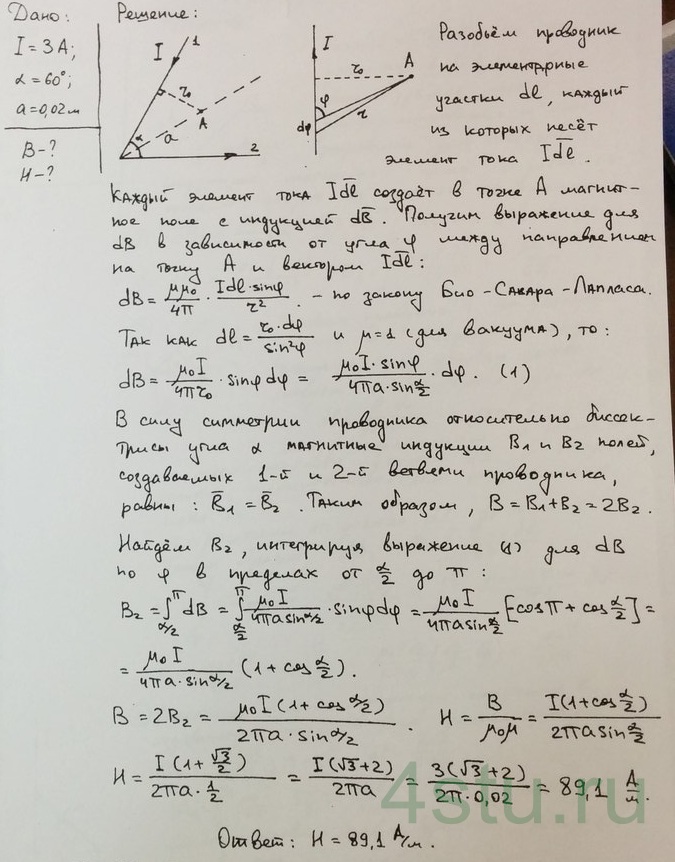 Дано:
I = 3 А;
α = 60°;
a = 0,02 м
B - ?
H - ?
Решение:
I
1
r₀
A
α
a
2
I
r₀
A
φ
r
dφ
Разобьём проводник
на элементарные
участки dl, каждый
из которых несёт
элемент тока Idl̅.
Каждый элемент тока Idl̅ создаёт в точке А магнит-
ное поле с индукцией dB̅. Получим выражение для
dB в зависимости от угла φ между направлением
на точку А и вектором Idl̅:
dB = μμ₀/4π · Idl·sinφ/r². - по закону Био-Савара-Лапласа.
Так как dl = r₀·dφ/sin²φ и μ=1 (для вакуума), то:
dB = μ₀I/4πr₀ · sinφdφ = μ₀I·sinφ/4πa·sin α/2 · dφ. (1)
В силу симметрии проводника относительно биссек-
трисы угла α магнитные индукции B₁ и B₂ полей,
создаваемых 1-й и 2-й ветвями проводника,
равны: B̅₁ = B̅₂. Таким образом, B = B₁+B₂ = 2B₂.
Найдём B₂, интегрируя выражение (1) для dB
по φ в пределах от α/2 до π:
B₂ = ∫_{α/2}^{π} dB = ∫_{α/2}^{π} μ₀I/4πa sin α/2 · sinφdφ = μ₀I/4πa sin α/2 [cosπ + cos α/2] =
= μ₀I/4πa·sin α/2 (1 + cos α/2).
B = 2B₂ = μ₀I(1 + cos α/2)/2πa·sin α/2 . H = B/μ₀μ = I(1+cos α/2)/2πa sin α/2
H = I(1 + √3/2)/2πa·1/2 = I(√3+2)/2πa = 3(√3+2)/2π·0,02 = 89,1 А/м.
Ответ: H = 89,1 А/м.
4stu.ru